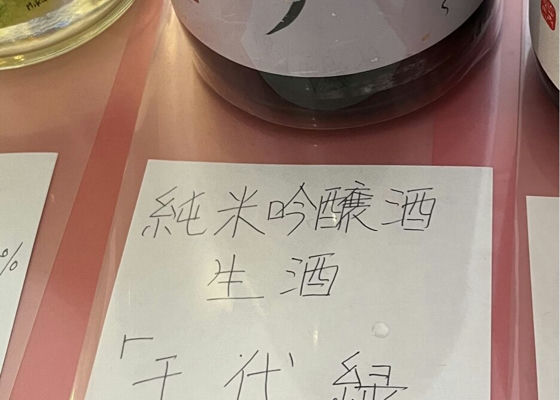 純米吟醸酒
生酒
「千代緑
%